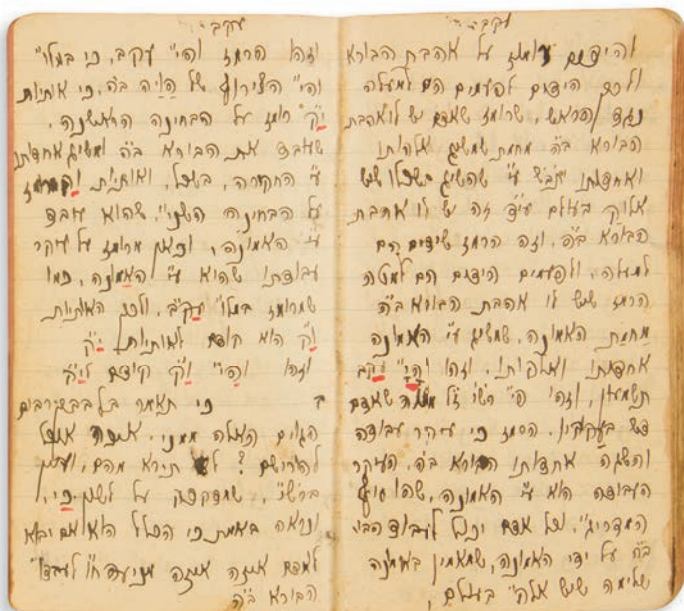 עקב
והידים רומז על אהבת הבורא
ולכן הידים לפעמים הם למעלה
נגד הראש, שרומז שאדם יש לו אהבת
הבורא ב"ה מחמת שמשיג אלהותו
ואחדותו ית"ש ע"י שהשיג בשכלו שיש
אלוק בעולם עי"ז זה יש לו אהבת
הבורא ב"ה, וזה הרמז שידים הם
למעלה, ולפעמים הידים הם למטה
הרמז שיש לו אהבת הבורא ב"ה
מחמת האמונה, שמשיג ע"י האמונה
אחדותו ואלקותו, וזהו והי' עקב
תשמעון, וזהו פי' רש"י ז"ל שאדם
דש בעקביו, הרמז כי עיקר עבודה
והשגה אחדותו הבורא ב"ה, העיקר
העבודה הוא ע"י האמונה, שהו סוף
המדריג', וכל אדם יכול לעבוד הבו'
ב"ה על ידי האמונה, שמאמין באמונה
שלימה שיש אלה' בעולם,
עקב
וזהו הרמז והי' עקב, כי במלו'
והי' הצירוף של הוי' ב"ה, כי אותיות
י"ק רומז על הבחינה הראשנה,
שעובד את הבורא ב"ה ומשיג אחדותו
ע"י החקירה, בשכל, ואותיות ו"ק מרמז
על הבחינה השני', שהוא עובד
ע"י האמונה, וכאן מרומז על עיקר
עבודתו שהוא ע"י האמונה, כמו
שמרומז במלו' עקב, ולכן האותיות
ו"ק הוא קודם לאותיות י"ק
וזהו והי' ו"ק קודם לי"ק
כי תאמר בלבבך רבים
הגוים האלה ממני, איכה אוכל
להורישם? לא תירא מהם, ועיין
ברש"י, שמדקדק על לשון כי,
ונראה באמת כי הכלל הוא אם יבא
לאדם איזה מניעה ח"ו לעבד'
הבורא ב"ה